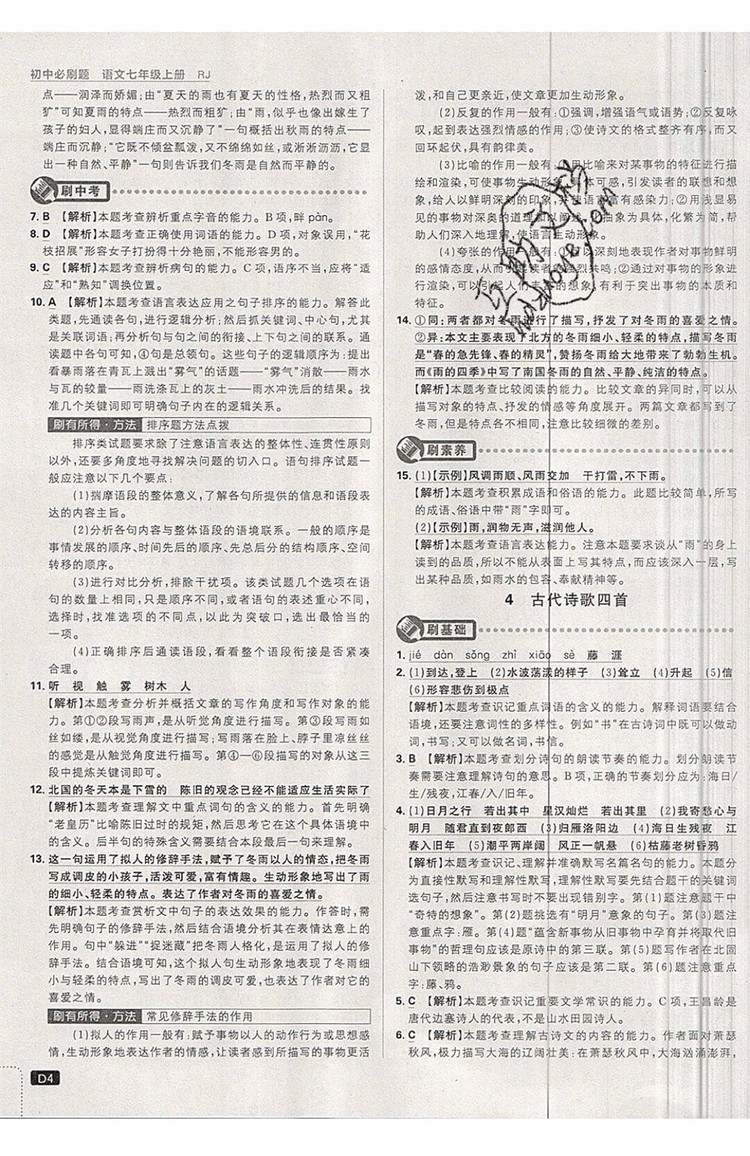 初中必刷题 语文七年级上册 RJ
点——润泽而娇媚;由“夏天的雨也有夏天的性格,热烈而又粗
犷”可知夏雨的特点——热烈而粗犷;由“雨,似乎也像出嫁生了
孩子的妇人,显得端庄而又沉静了”一句概括出秋雨的特点——
端庄而沉静;“它既不倾盆瓢泼,又不绵绵如丝,或淅淅沥沥,它显
出一种自然、平静”一句则告诉我们冬雨是自然而平静的。
刷中考
7. B 【解析】本题考查辨析重点字音的能力。B项,畔 pàn。
8. D 【解析】本题考查正确使用词语的能力。D项,对象误用,“花
枝招展”形容女子打扮得十分艳丽,不能形容男的。
9. C 【解析】本题考查辨析病句的能力。C项,语序不当,应将“适
应”和“熟知”调换位置。
10. A 【解析】本题考查语言表达应用之句子排序的能力。解答此
类题,先通读各句,进行全局分析;然后抓关键词、中心句,尤其
是关联词语;再分析句与句之间的衔接、上下句之间的联系。通
读题中各句可知,④句是总领句。这些句子的逻辑顺序为:提出
看暴雨落在青瓦上溅出“雾气”的话题——“雾气”消散——雨水
与瓦的较量——雨洗涤瓦上的灰土——雨水冲洗后的结果。找
准几个关键词即可明确句子内在的逻辑关系。
刷有所得·方法 排序题方法点拨
排序类试题要求除了注意语言表达的整体性、连贯性原则
以外,还要多角度地寻找解决问题的切入口。语句排序试题一
般应注意以下几个要点:
(1)揣摩语段的整体意义,了解各句所提供的信息和语段表
达的内容主旨。
(2)分析各句内容与整体语段的语境联系。一般的顺序是
事情发展的顺序、时间先后的顺序、总先分后的结构顺序、空间
转移的顺序。
(3)进行对比分析,排除干扰项。该类试题几个选项在语
句的数量上相同,只是顺序不同,或者语句的表述重心不同,
选择时,找准选项的不同点,以此为突破口,选出最恰当的
一项。
(4)正确排序后通读语段,看看整个语段衔接是否紧凑
合理。
11. 听 视 触 雾 树木 人
【解析】本题考查分析并概括文章的写作角度和写作对象的能
力。第①②段写雨声,是从听觉角度进行描写。第③段写雨如
丝如缕,是从视觉角度进行描写;写雨落在脸上、脖子里凉丝丝
的感觉是从触觉角度进行描写。第④—⑥段描写的对象从这三
段中提炼关键词即可。
12. 北国的冬天本是下雪的 陈旧的观念已经不能适应生活实际了
【解析】本题考查理解文中重点词句的含义的能力。首先明确
“老皇历”比喻陈旧过时的规矩,然后思考它在这个具体语境中
的含义。后半句的特殊含义需要结合本段最后一句来理解。
13. 这一句运用了拟人的修辞手法,赋予了冬雨以人的情态,把冬雨
写成调皮的小孩子,活泼可爱,富有情趣。生动形象地写出了雨
的细小、轻柔的特点。表达了作者对冬雨的喜爱之情。
【解析】本题考查赏析文中句子的表达效果的能力。作答时,需
先明确句子的修辞手法,然后结合语境分析其在表情达意方面
的作用。句中“躲进”“捉迷藏”把冬雨人格化,是运用了拟人的修
辞手法。结合语境分析,这个拟人句生动形象地表现了冬雨细
小与轻柔的特点,写出了冬雨的调皮可爱,也表达了作者对它的
喜爱之情。
刷有所得·方法 常见修辞手法的作用
(1)拟人的作用一般有:赋予事物以人的动作行为或思想感
情,生动形象地表达作者的情感,让读者感到所描写的事物更活
D4
泼,和自己更亲近,使文章更加生动形象。
(2)反复的作用一般有:①强调,增强语气或语势;②反复咏
叹,起到表达强烈情感的作用;③使诗文的格式整齐有序,而又
回环起伏,具有韵律美。
(3)比喻的作用一般有:①用比喻来对某事物的特征进行描
绘和渲染,可使事物生动形象具体可感,引发读者的联想和想
象,给人以鲜明深刻的印象,并使语言富有感染力;②用浅显易
见的事物对深奥的道理加以阐述,化抽象为具体,化繁为简,帮
助人们深入地理解,使语言生动形象。
(4)夸张的作用一般有:①可以深刻地表现作者对事物鲜明
的感情态度,从而引起读者的强烈共鸣;②通过对事物的形象进
行渲染,可以引起人们丰富的想象,有利于突出事物的本质和
特征。
14. ①同:两者都对冬雨进行了描写,抒发了对冬雨的喜爱之情。
②异:本文主要表现了北方的冬雨细小、轻柔的特点,描写冬雨
是“春的急先锋、春的精灵”,赞扬冬雨给大地带来了勃勃生机。
而《雨的四季》中写了南国冬雨的自然、平静、纯洁的特点。
【解析】本题考查比较阅读的能力。比较文章的异同时,可以从
描写对象的特点、抒发的情感等角度展开。两篇文章都写到了
冬雨,但特点各不相同,注意比较细微的差别。
刷素养
15. (1)【示例】风调雨顺、风雨交加 干打雷,不下雨。
【解析】本题考查积累成语和俗语的能力。此题比较简单,所写
的成语、俗语中带“雨”字即可。
(2)【示例】雨,润物无声,滋润他人。
【解析】本题考查语言表达能力。注意本题要求谈从“雨”的身上
读到的品质,所以不能从表面上写其特点,而应该深入一层,写
出某种品质,如雨水的包容、奉献精神等。
4 古代诗歌四首
刷基础
1. jié dàn sǒng zhì xiāo sè 藤 涯
2. (1)到达,登上 (2)水波荡漾的样子 (3)耸立 (4)升起 (5)信
(6)形容悲伤到极点
【解析】本题考查识记重点词语的含义的能力。解释词语要结合
语境,还要注意词性的多样性。例如“书”在古诗词中既可以做动
词,书写;又可以做名词,书信。
3. B 【解析】本题考查划分诗句的朗读节奏的能力。划分朗读节
奏需要注意理解诗句的意思。B项,正确的节奏划分应为:海日/
生/残夜,江春/入/旧年。
4. (1)日月之行 若出其中 星汉灿烂 若出其里 (2)我寄愁心与
明月 随君直到夜郎西 (3)归雁洛阳边 (4)海日生残夜 江
春入旧年 (5)潮平两岸阔 风正一帆悬 (6)枯藤老树昏鸦
【解析】本题考查识记、理解并准确默写名篇名句的能力。本题分
为直接性默写和理解性默写,理解性默写要先结合题干的关键词
选句子,然后注意书写时不要出现错别字。第(1)题注意题干中
“奇特的想象”。第(2)题挑选有“明月”意象的句子。第(3)题注
意重点字:雁。第(4)题“蕴含新事物从旧事物中孕育并将取代旧
事物”的哲理句应该是原诗中的第三联。第(5)题写作者在北固
山下领略的浩渺景象的句子应该是第二联。第(6)题注意重点
字:藤、鸦。
5. C 【解析】本题考查识记重要文学常识的能力。C项,王昌龄是
唐代边塞诗人的代表,不是山水田园诗人。
6. C 【解析】本题考查理解古诗文的内容的能力。作者面对萧瑟
秋风,极力描写大海的辽阔壮美:在萧瑟秋风中,大海汹涌澎湃,